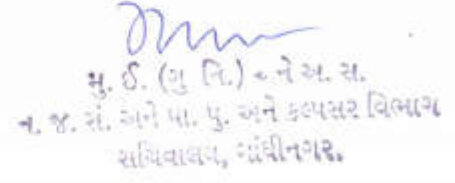 મુ. ઈ. (ગુ નિ.) અને અ. સ.
ન. જ. સં. અને પા. પુ. અને કલ્પસર વિભાગ
સચિવાલય, ગાંધીનગર.